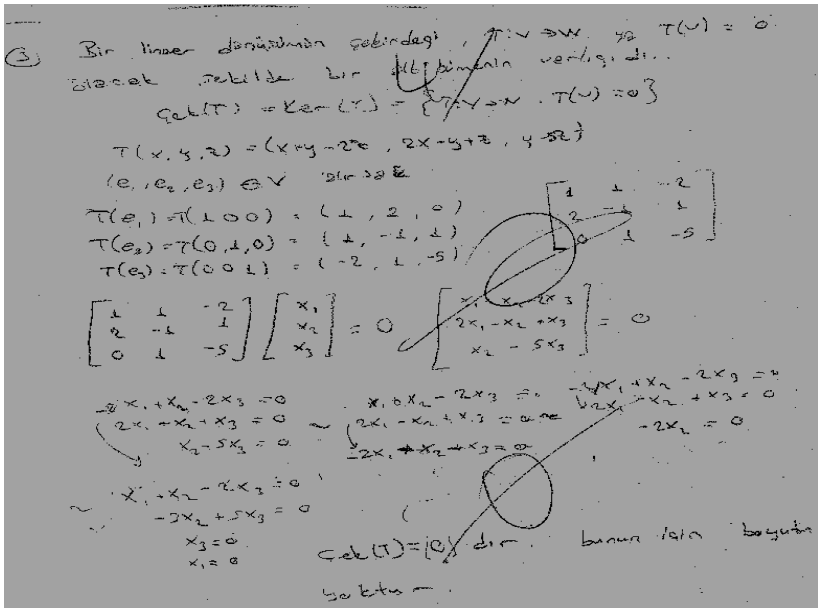 ③ Bir lineer dönüşümün çekirdeği, T:V→W ya T(V) = 0
olacak şekilde bir alt kümenin varlığıdır..
Çek(T) = Ker(T) = {T:V→W . T(V) = 0}
T(x, y, z) = (x+y-2z, 2x-y+z, y-5z)
(e₁, e₂, e₃) ∈ V
T(e₁) = T(1 0 0) = (1, 2, 0)
T(e₂) = T(0,1,0) = (1, -1, 1)
T(e₃) = T(0 0 1) = (-2, 1, -5)
[1 1 -2
2 -1 1
0 1 -5]
[1 1 -2
2 -1 1
0 1 -5] [x₁
x₂
x₃] = 0
[x₁ - x₂ - 2x₃
2x₁ - x₂ + x₃
x₂ - 5x₃] = 0
-2 x₁ + x₂ - 2x₃ = 0
2x₁ - x₂ + x₃ = 0
x₂ - 5x₃ = 0
~ x₁ + x₂ - 2x₃ = 0
2x₁ - x₂ + x₃ = 0
-2x₁ + x₂ + x₃ = 0
x₁ + x₂ - 2x₃ = 0
2x₁ - x₂ + x₃ = 0
-2x₂ = 0
~ x₁ + x₂ - 2x₃ = 0
-3x₂ + 5x₃ = 0
x₃ = 0
x₁ = 0
Çek(T) = {0} dır. bunun için boyutu
yoktur.